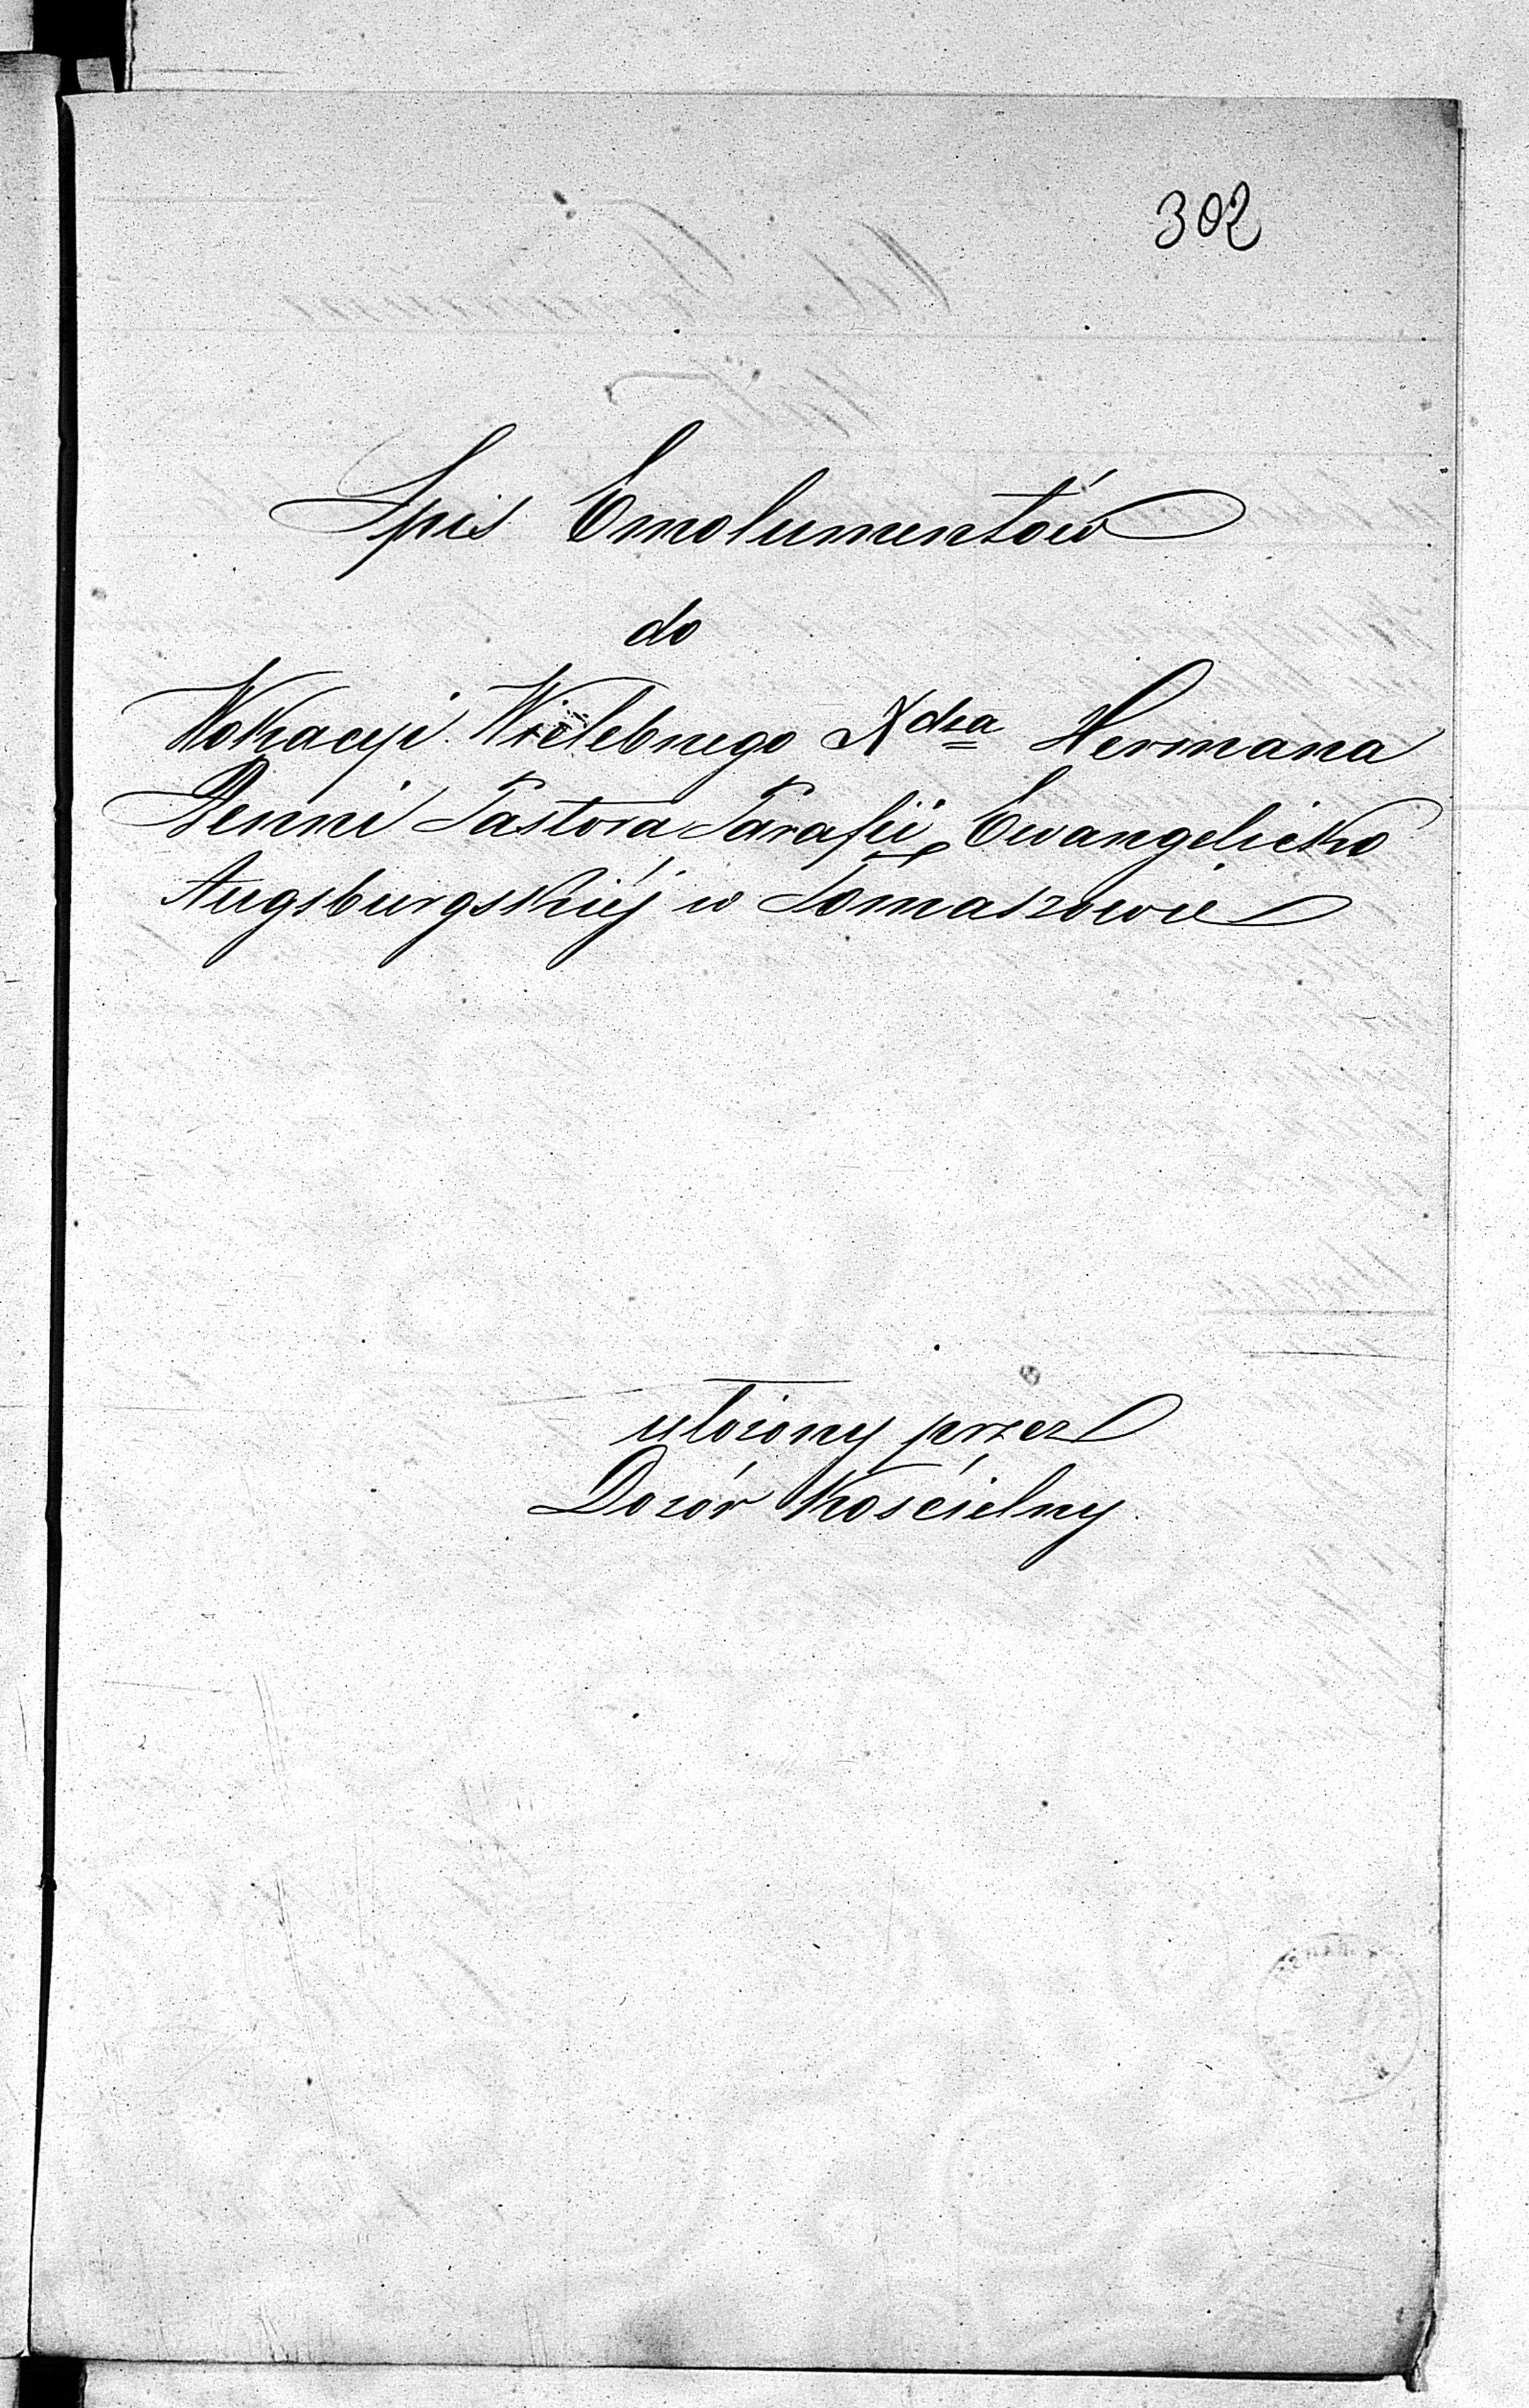 302
Spis Emolumentów
do
Wokacyi Wielebnego Xdza Hermana
Benni Pastora Parafii Ewangelicko
Augsburgskiéj w Tomaszowie
ułożony przez
Dozór Kościelny.